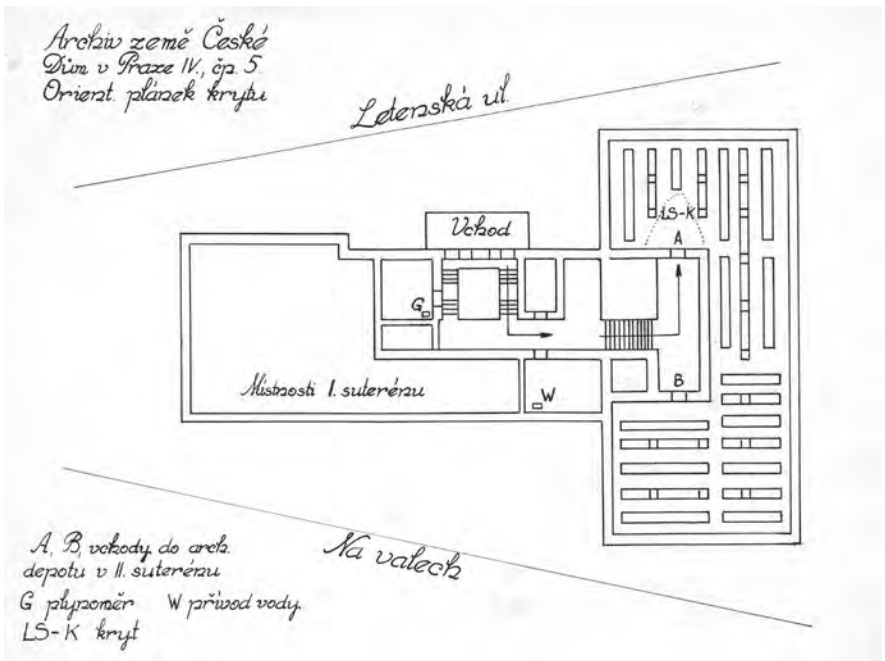 Archiv země České
Dům v Praze IV., čp. 5
Orient. plánek krytu
Letenská ul.
Vchod
LS-K
A
G
Místnosti I. suterénu
W
B
Na valech
A, B, vchody do arch.
depotu v II. suterénu
G plynoměr W přívod vody.
LS-K kryt